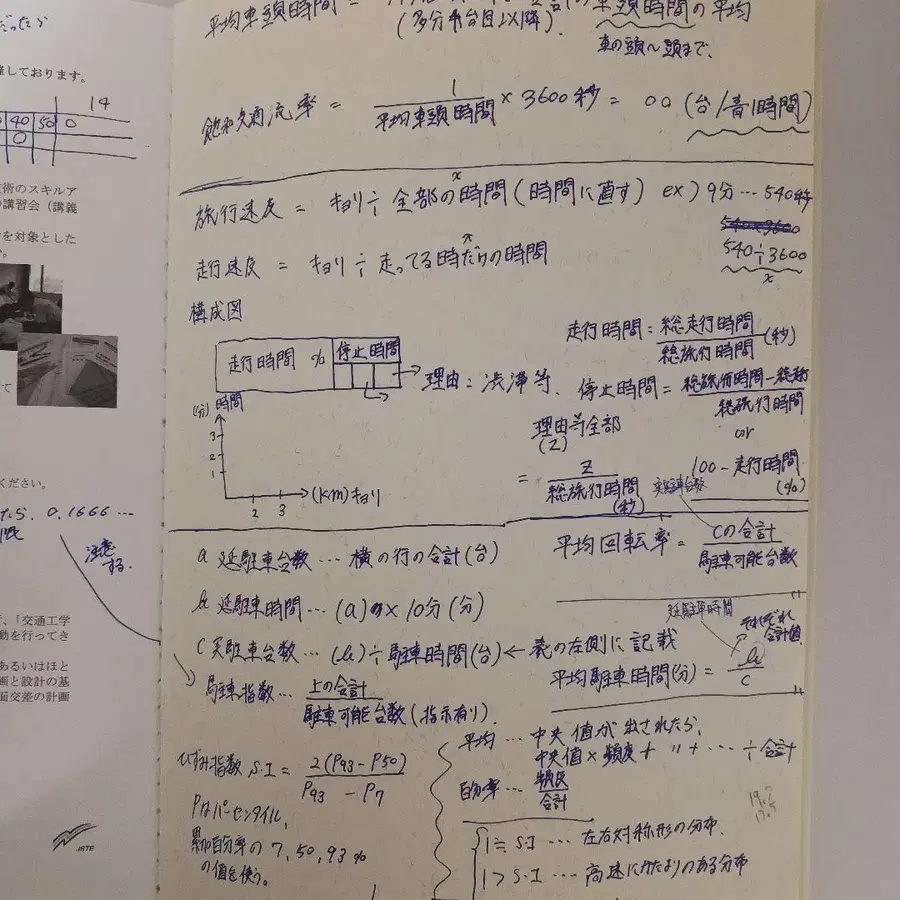 だったら
催しております。
14
40 50 0
0
技術のスキルア
講習会（講義
を対象とした
て
ください。
たら、0.1666…
注意する。
、「交通工学
動を行ってき
あるいはほと
画と設計の基
面交差の計画
JSTE
平均車頭時間 =
の車頭時間の平均
車の頭〜頭まで.
飽和交通流率 = 1/平均車頭時間 × 3600秒 = 00 (台/青1時間)
旅行速度 = キョリ÷全部の時間(時間に直す) ex) 9分…540秒
x
540÷3600
x
走行速度 = キョリ÷走ってる時だけの時間
構成図
走行時間 % 停止時間
理由:渋滞等.
走行時間 = 総走行時間/総旅行時間 (秒)
停止時間 = 総旅行時間-総走行/総旅行時間
or
100-走行時間
(%)
理由等全部
(Z)
= Z/総旅行時間
(秒)
(分)時間
3
2
1
2 3 (km)キョリ
a 延駐車台数…横の行の合計(台)
b 延駐車時間…(a)×10分(分)
C 実駐車台数…(b)÷駐車時間(台)←表の左側に記載
駐車指数…上の合計/駐車可能台数(指示有り).
実駐車台数
平均回転率 = Cの合計/駐車可能台数
延駐車時間
それぞれ
合計値
平均駐車時間(分) = b/c
ひずみ指数 S.I = 2(P93-P50)/P93-P7
Pはパーセンタイル,
累加百分率の7,50,93%
の値を使う。
平均…中央値が出されたら,
中央値×頻度+〃+…÷合計
百分率…頻度/合計
1≒S.I…左右対称形の分布.
1>S.I…高速にかたよりのある分布